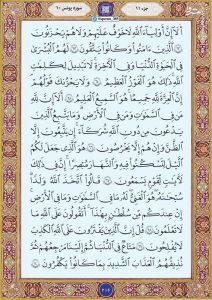 جزء ۱۱
سوره یونس ۱۰
أَلَآ إِنَّ أَوْلِيَآءَ ٱللَّهِ لَا خَوْفٌ عَلَيْهِمْ وَلَا هُمْ يَحْزَنُونَ ۶۲
ٱلَّذِينَ ءَامَنُوا۟ وَكَانُوا۟ يَتَّقُونَ ۶۳ لَهُمُ ٱلْبُشْرَىٰ
فِى ٱلْحَيَوٰةِ ٱلدُّنْيَا وَفِى ٱلْـَٔاخِرَةِ لَا تَبْدِيلَ لِكَلِمَـٰتِ
ٱللَّهِ ذَٰلِكَ هُوَ ٱلْفَوْزُ ٱلْعَظِيمُ ۶۴ وَلَا يَحْزُنكَ قَوْلُهُمْ
إِنَّ ٱلْعِزَّةَ لِلَّهِ جَمِيعًا هُوَ ٱلسَّمِيعُ ٱلْعَلِيمُ ۶۵ أَلَآ إِنَّ لِلَّهِ
مَن فِى ٱلسَّمَـٰوَٰتِ وَمَن فِى ٱلْأَرْضِ وَمَا يَتَّبِعُ ٱلَّذِينَ
يَدْعُونَ مِن دُونِ ٱللَّهِ شُرَكَآءَ إِن يَتَّبِعُونَ إِلَّا
ٱلظَّنَّ وَإِنْ هُمْ إِلَّا يَخْرُصُونَ ۶۶ هُوَ ٱلَّذِى جَعَلَ لَكُمُ
ٱلَّيْلَ لِتَسْكُنُوا۟ فِيهِ وَٱلنَّهَارَ مُبْصِرًا إِنَّ فِى ذَٰلِكَ
لَـَٔايَـٰتٍ لِّقَوْمٍ يَسْمَعُونَ ۶۷ قَالُوا۟ ٱتَّخَذَ ٱللَّهُ وَلَدًا
سُبْحَـٰنَهُۥ هُوَ ٱلْغَنِىُّ لَهُۥ مَا فِى ٱلسَّمَـٰوَٰتِ وَمَا فِى ٱلْأَرْضِ
إِنْ عِندَكُم مِّن سُلْطَـٰنٍۭ بِهَـٰذَآ أَتَقُولُونَ عَلَى ٱللَّهِ مَا
لَا تَعْلَمُونَ ۶۸ قُلْ إِنَّ ٱلَّذِينَ يَفْتَرُونَ عَلَى ٱللَّهِ ٱلْكَذِبَ
لَا يُفْلِحُونَ ۶۹ مَتَـٰعٌ فِى ٱلدُّنْيَا ثُمَّ إِلَيْنَا مَرْجِعُهُمْ ثُمَّ
نُذِيقُهُمُ ٱلْعَذَابَ ٱلشَّدِيدَ بِمَا كَانُوا۟ يَكْفُرُونَ ۷۰
۲۱۶